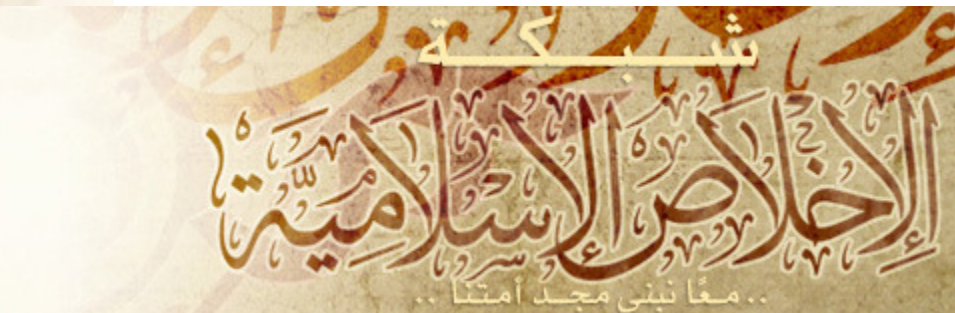 شبكة
الإخلاص الإسلامية
.. معًا نبني مجد أمتنا ..